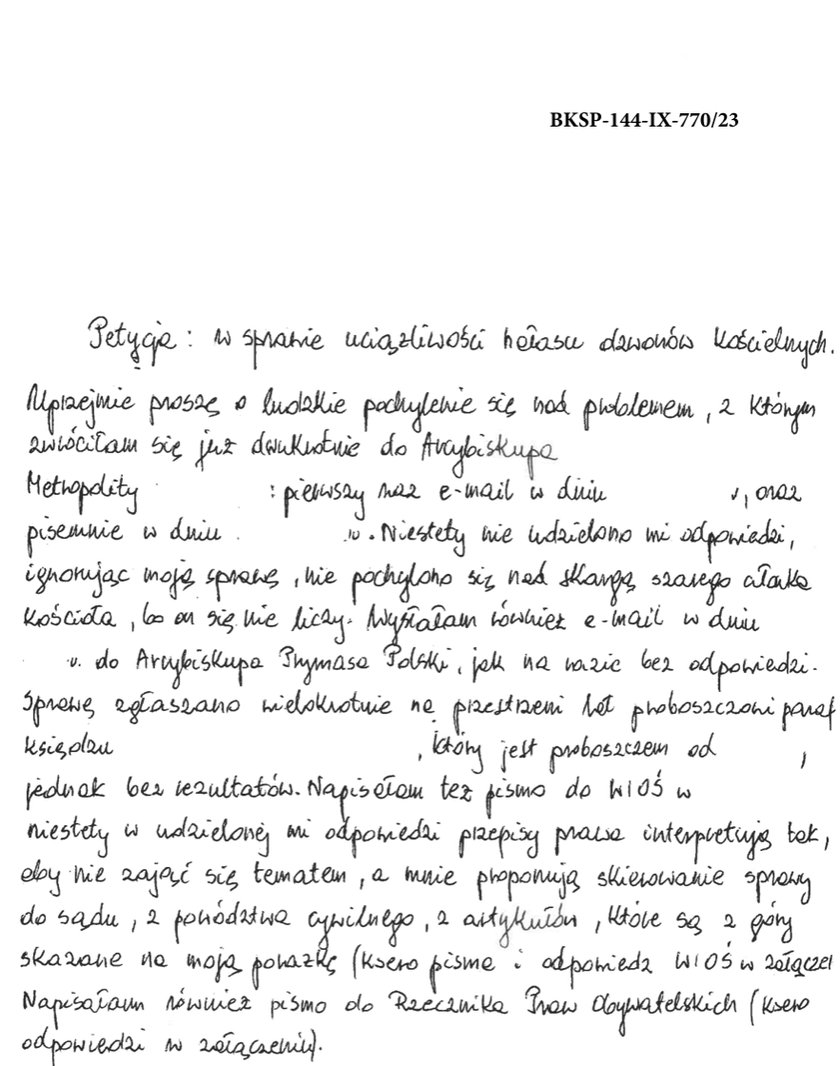 BKSP-144-IX-770/23
Petycja: w sprawie uciążliwości hałasu dzwonów kościelnych.
Uprzejmie proszę o ludzkie pochylenie się nad problemem, z którym
zwróciłam się już dwukrotnie do Arcybiskupa
Metropolity : pierwszy raz e-mail w dniu , oraz
pisemnie w dniu . Niestety nie udzielono mi odpowiedzi,
ignorując moją sprawę, nie pochylono się nad skargą szarego członka
Kościoła, bo on się nie liczy. Wysłałam również e-mail w dniu
do Arcybiskupa Prymasa Polski, jak na razie bez odpowiedzi.
Sprawę zgłaszano wielokrotnie na przestrzeni lat proboszczowi paraf
księdzu , który jest proboszczem od ,
jednak bez rezultatów. Napisałam też pismo do WIOŚ w
niestety w udzielonej mi odpowiedzi przepisy prawa interpretują tak,
aby nie zająć się tematem, a mnie proponują skierowanie sprawy
do sądu, z powództwa cywilnego, z artykułów, które są z góry
skazane na moją porażkę (ksero pisma i odpowiedz WIOŚ w załącze
Napisałam również pismo do Rzecznika Praw Obywatelskich (ksero
odpowiedzi w załączeniu).